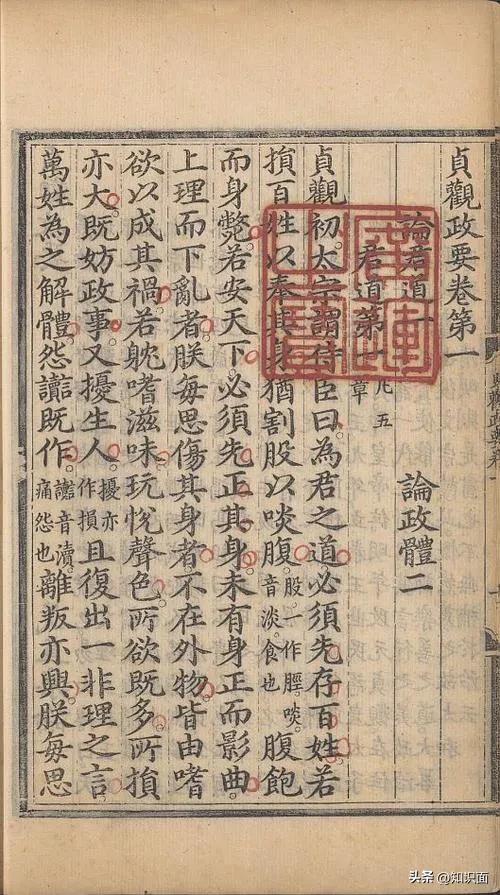 貞觀政要卷第一
論君道一 論政體二
君道第一 凡五章
貞觀初太宗謂侍臣曰為君之道必須先存百姓若
損百姓以奉其身猶割股以啖腹股一作脛啖音淡食也腹飽
而身斃若安天下必須先正其身未有身正而影曲
上理而下亂者朕每思傷其身者不在外物皆由嗜
欲以成其禍若躭嗜滋味玩悅聲色所欲既多所損
亦大既妨政事又擾生人擾亦作損且復出一非理之言
萬姓為之解體怨讟既作讟音瀆痛怨也離叛亦興朕每思
头条 @知识面